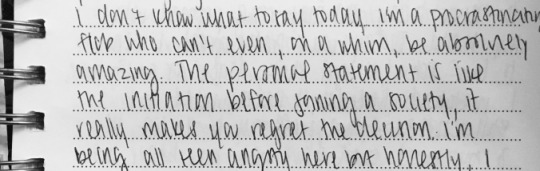 i don't know what to say today, i'm a procrastinating
flob who can't even, on a whim, be absolutely
amazing. The personal statement is like
the initiation before joining a society, it
really makes you regret the decision. i'm
being all teen angsty here but honestly, I